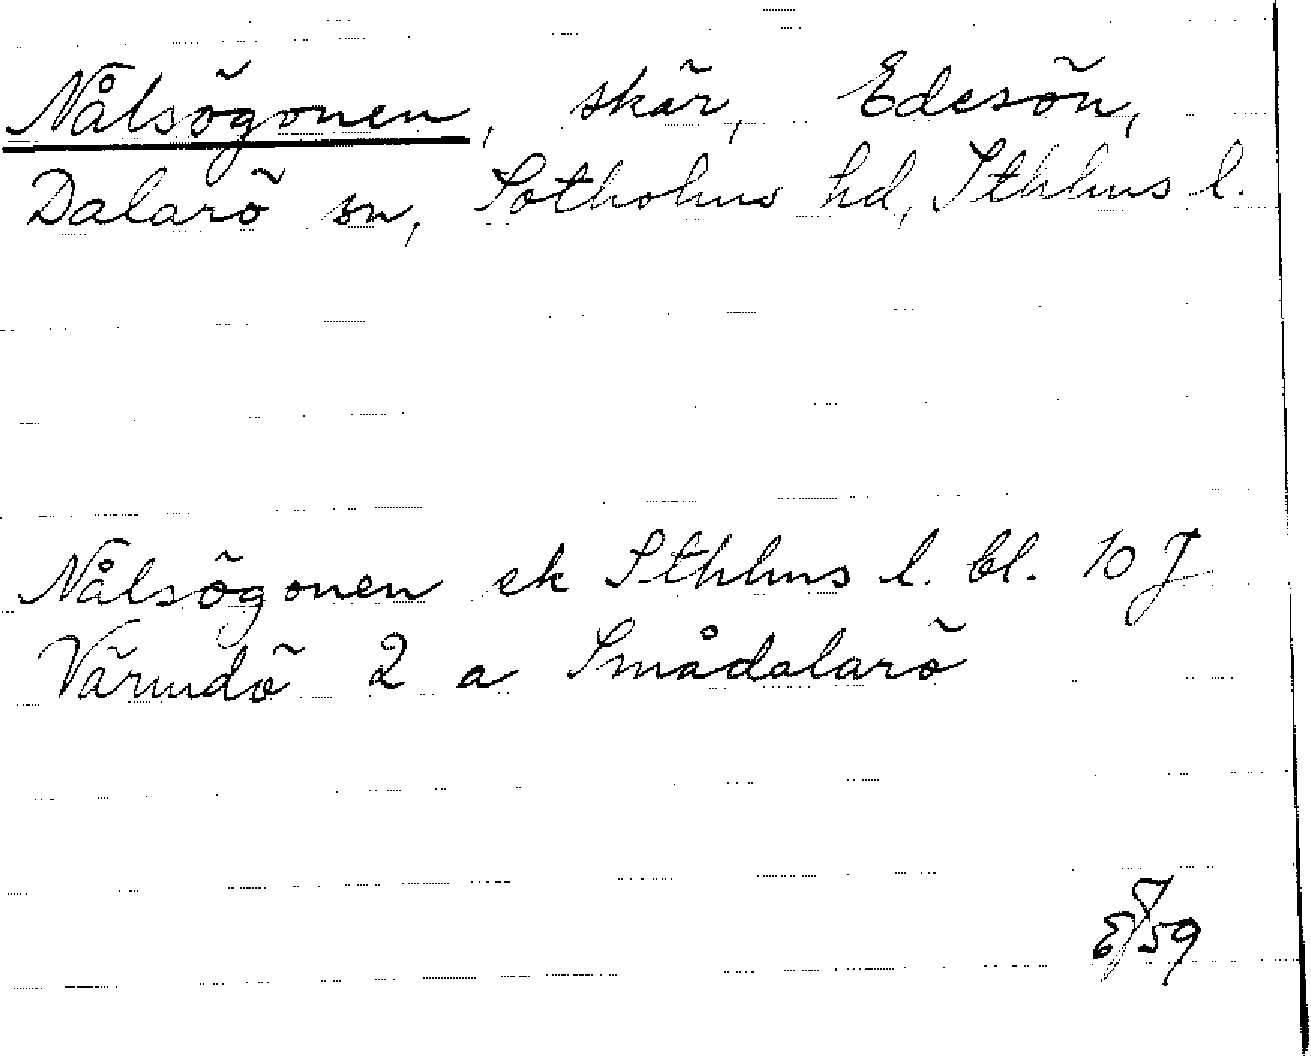 Nålsögonen, skär, Edesön,
Dalarö sn, Sotholms hd, Sthlms l.
Nålsögonen ek Sthlms l. bl. 10 J
Värmdö 2 a Smådalarö
59